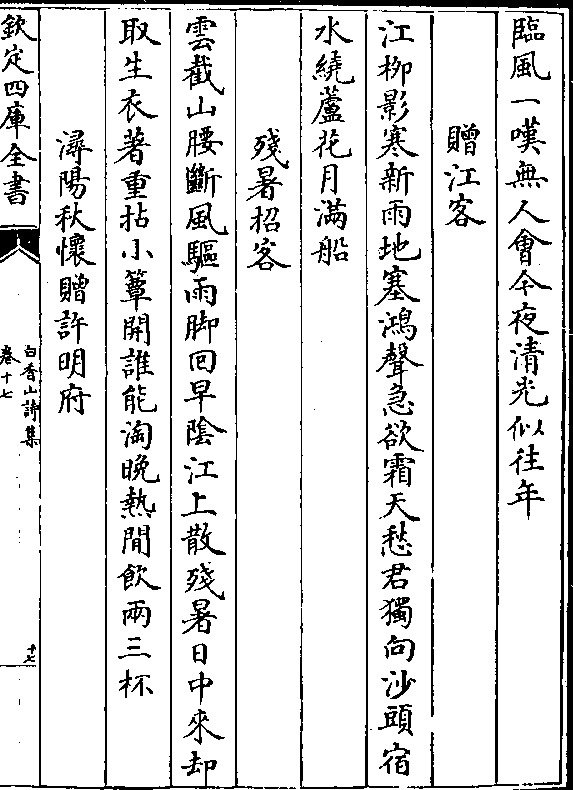 臨風一嘆無人會今夜清光似往年
贈江客
江柳影寒新雨地塞鴻聲急欲霜天愁君獨向沙頭宿
水繞蘆花月滿船
殘暑招客
雲截山腰斷風驅雨脚囘早陰江上散殘暑日中來却
取生衣著重拈小簟開誰能淘晚熱閒飲兩三杯
潯陽秋懷贈許明府
欽定四庫全書
白香山詩集
卷十七
十七